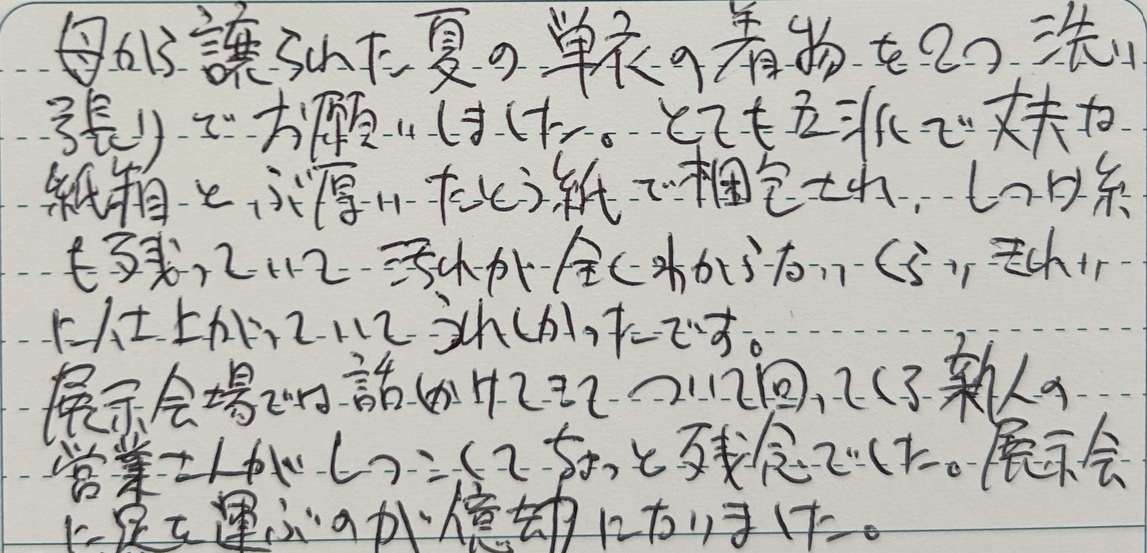 母から譲られた夏の単衣の着物を2つ洗い
張りでお願いしました。とても立派で丈夫な
紙箱とぶ厚いたとう紙で梱包され、しつけ糸
も残っていて汚れが全くわからないくらいきれい
に仕上がっていてうれしかったです。
展示会場では話しかけてきてついて回ってくる新人の
営業さんがしつこくてちょっと残念でした。展示会
に足を運ぶのが億劫になりました。